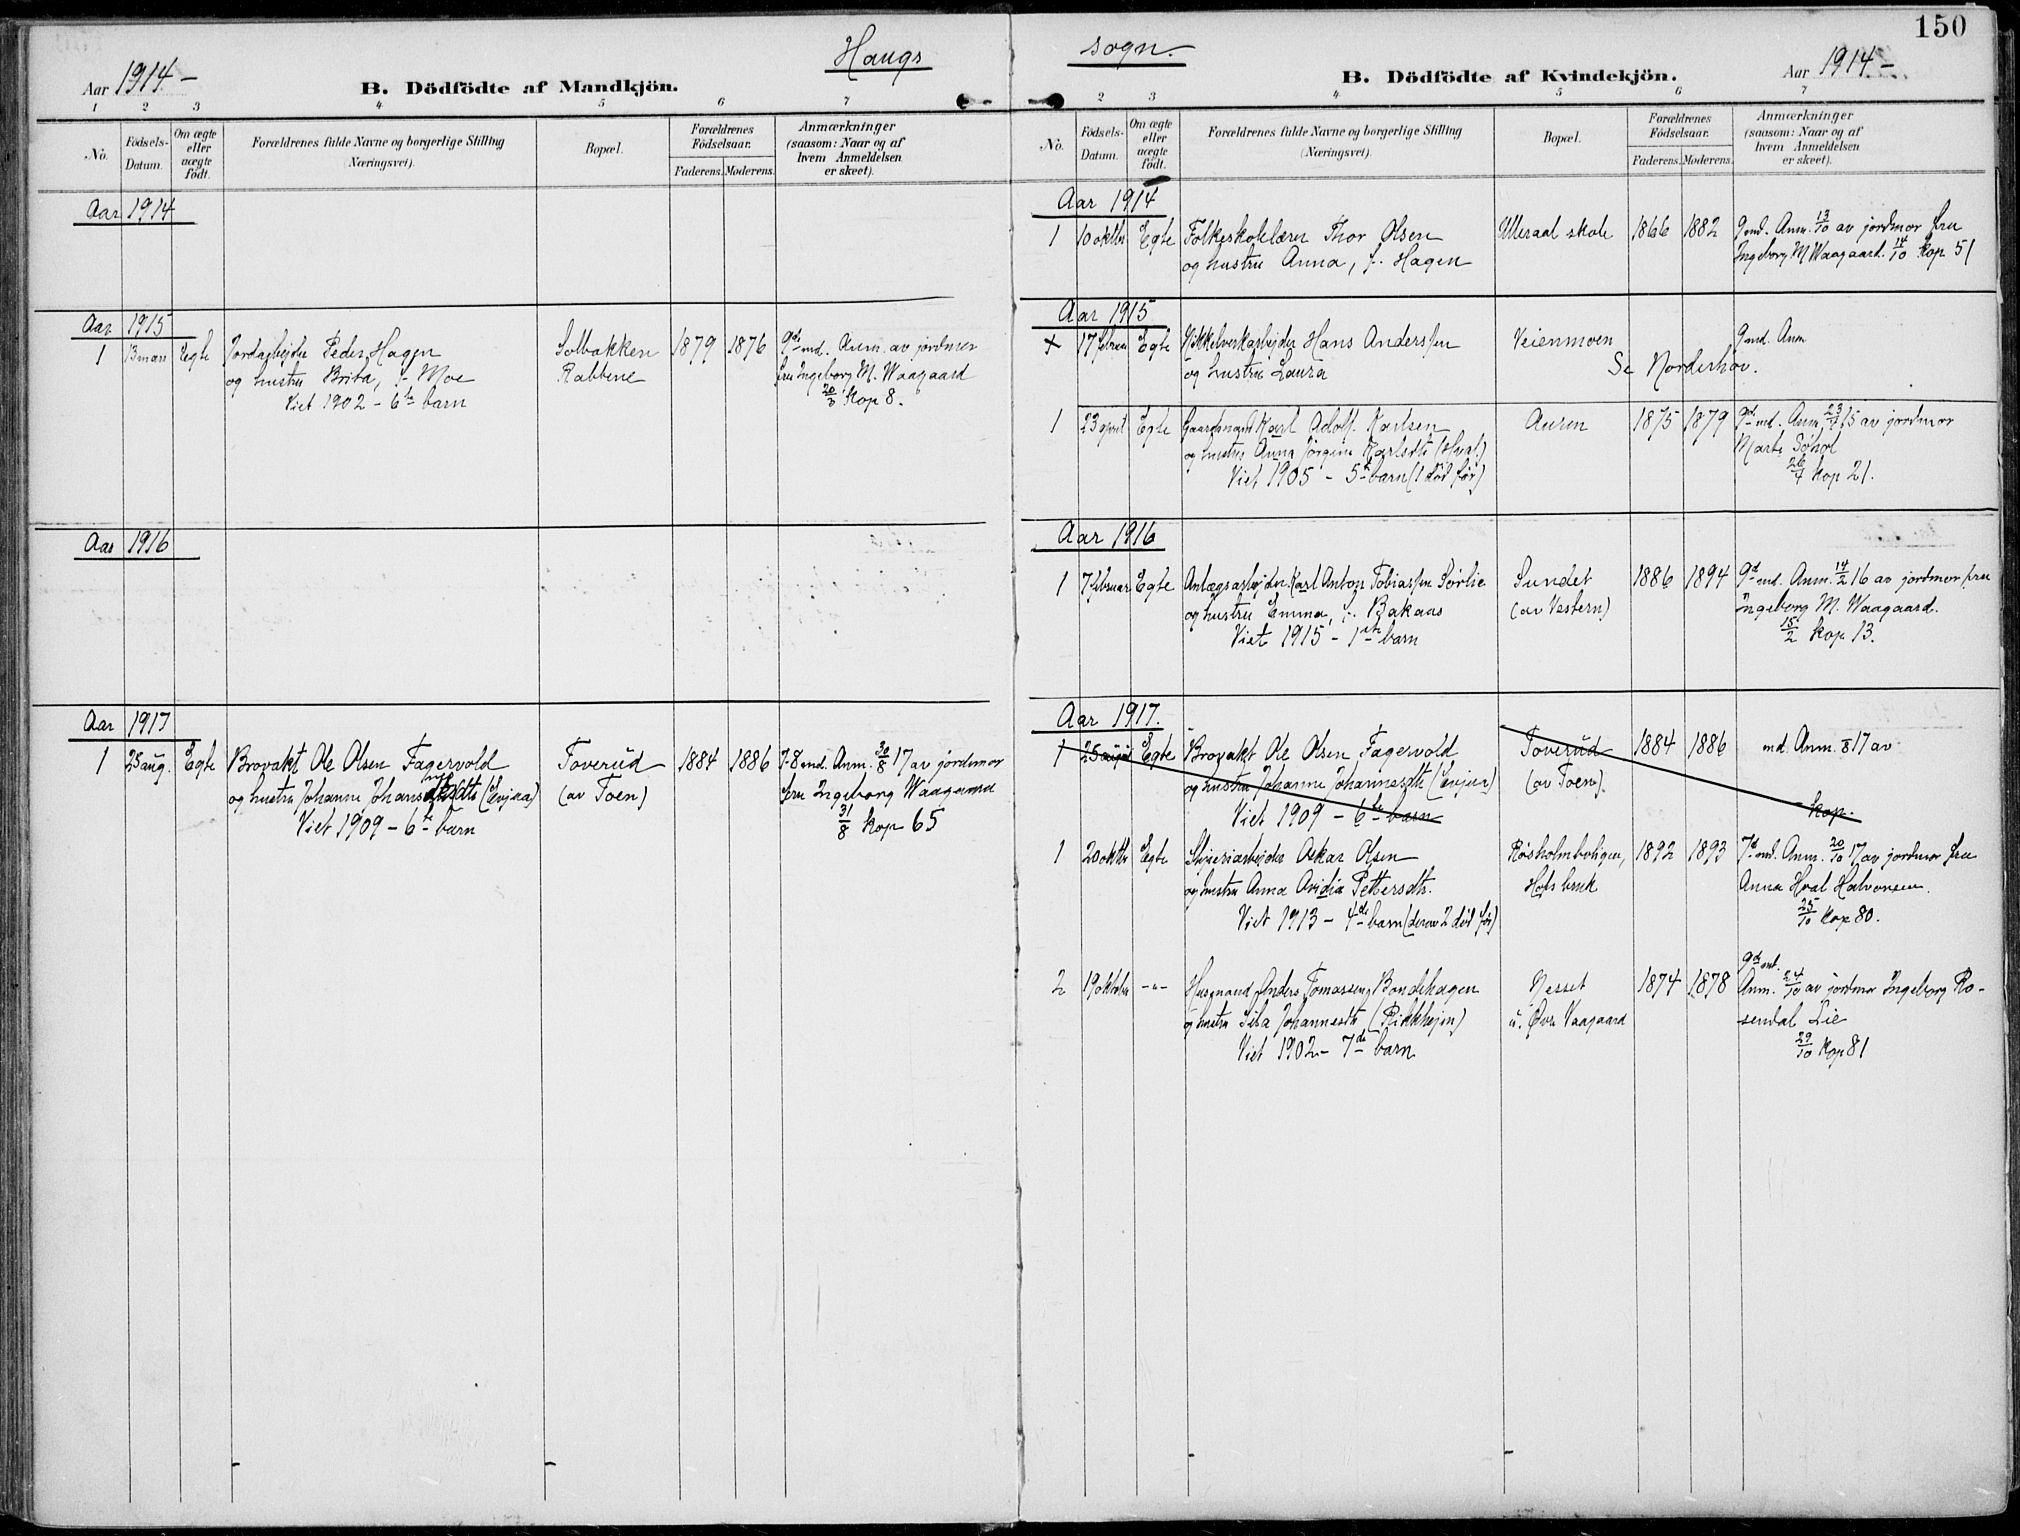 150
Haugs
sogn.
Aar 1914 –
B. Dödfödte af Mandkjön.
1 2 3 4 5 6 7
No.
Födsels-Datum.
Om ægte eller uægte født.
Forældrenes fulde Navne og borgerlige Stilling
(Næringsvei).
Bopæl.
Forældrenes Födselsaar.
Faderens. Moderens.
Anmærkninger
(saasom: Naar og af
hvem Anmeldelsen
er skeet).
Aar 1914
Aar 1915
1 13 mars Uegte Jordarbejder Peder Hagen Solbakken 1879 1876 9de md. Anm. av jordmor
og hustru Brita, f. Moe Rabbene fru Ingeborg M. Waagaard
Viet 1902 – 6te barn 20/3 Kop 8.
Aar 1916
Aar 1917
1 25 aug. Egte Brovakt Ole Olsen Fagervold Toverud 1884 1886 7-8 md. Anm. 30/8 17 av jordmor
og hustru Johanne (Evjua) (av Toen) fru Ingeborg Waagaard
Viet 1909 – 6te barn 31/8 Kop 65
Aar 1914 –
B. Dödfödte af Kvindekjön.
2 3 4 5 6 7
No.
Födsels-Datum.
Om ægte eller uægte født.
Forældrenes fulde Navne og borgerlige Stilling
(Næringsvei).
Bopæl.
Forældrenes Födselsaar.
Faderens. Moderens.
Anmærkninger
(saasom: Naar og af
hvem Anmeldelsen
er skeet).
Aar 1914
1 10 oktbr Egte Folkeskolelærer Thor Olsen Ulleraal skole 1866 1882 9 md. Anm. 13/10 av jordmor fru
og hustru Anna, f. Hagen Ingeborg M Waagaard. 14/10 Kop 51
Aar 1915
+ 17 februar Egte Nikkelverkarbejder Hans Anderssen Veienmoen 9 md. Anm
og hustru Laura Se Norderhov.
1 23 april Egte Gaardmand Karl Adolf Karlsen Auren 1875 1879 9de md. Anm. 23/4 15 av jordmor
og hustru Anna Jørgine Karlsdt (Hval) Marte Søhol
Viet 1905 – 5te barn (1 død før) 26/4 Kop 21.
Aar 1916
1 7 februar Egte Anlægsarbejder Karl Anton Tobiassen Sørlie Sundet 1886 1894 9d md. Anm. 14/2 16 av jordmor fru
og hustru Emma, f. Bakaas (av Vestern) Ingeborg M. Waagaard.
Viet 1915 – 1ste barn 15/2 Kop 13.
Aar 1917.
1 25 august Egte Brovakt Ole Olsen Fagervold Toverud 1884 1886 md. Anm. /8 17 av
og hustru Johanne Johannesdt (Evjua) (av Toen).
Viet 1909 – 6te barn Kop.
1 20 oktbr Egte Sliperiarbejder Oskar Olsen Røsholmboligen, 1892 1893 7d md. Anm. 20/10 17 av jordmor fru
og hustru Anna Ovidia Pettersdt. Hofs bruk Anna Hval Halvorsen.
Viet 1913 – 4de barn (derav 2 død før) 25/10 Kop 80.
9de md.
2 19 oktober –"– Husmand Anders Tomassen Bondehagen Nesset 1874 1878 Anm. 24/10 av jordmor Ingeborg Ro-
og hustru Johannesdt u. Øvre Vaagaard sendal Lie
Viet 1902 – 7de barn 29/10 Kop 81